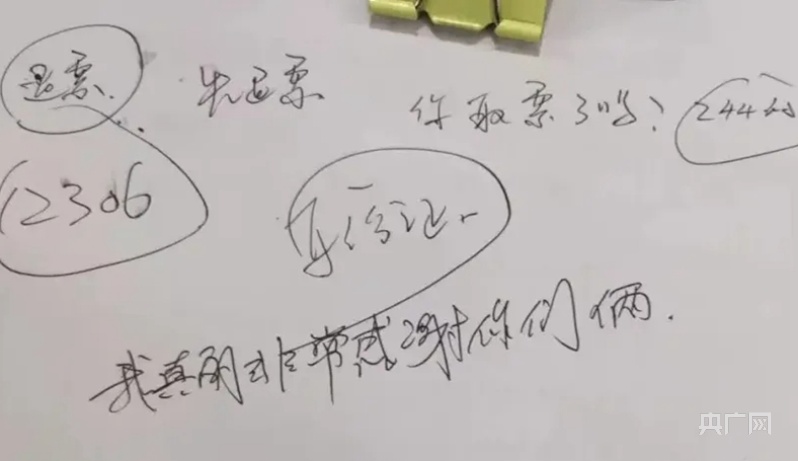 退票. 先退票 你取票了吗? 244的
12306 身份证.
我真的非常感谢你们俩.
央广网